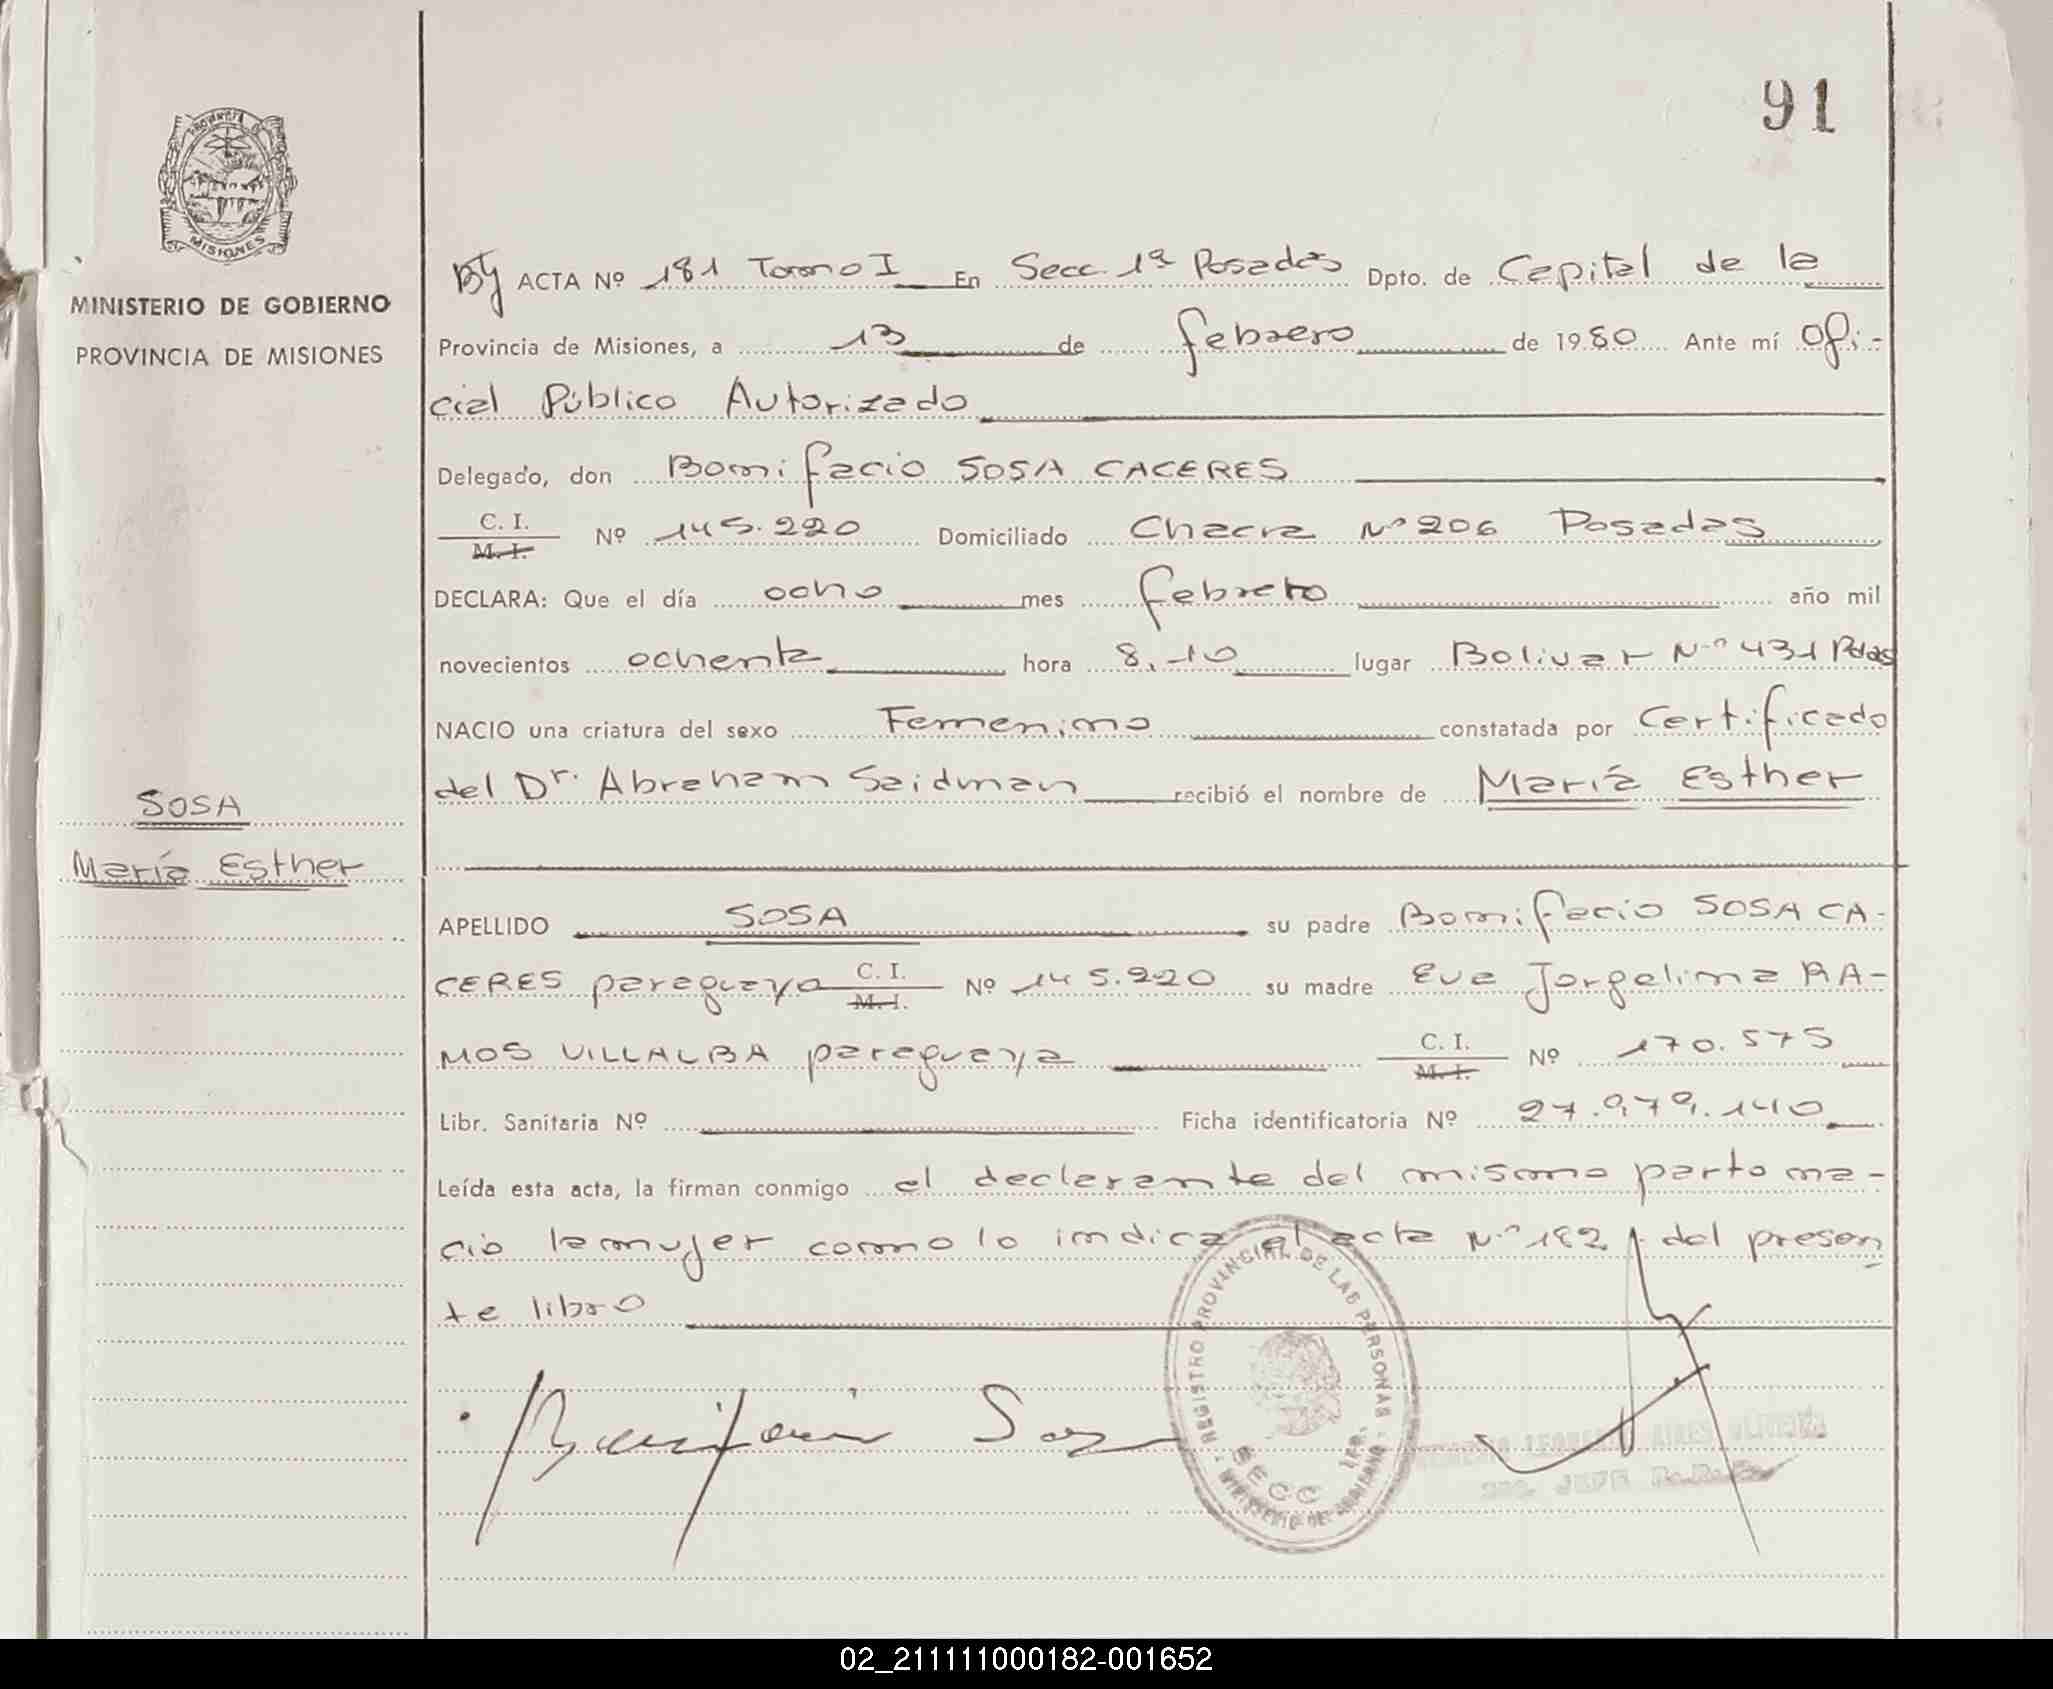 91
PROVINCIA DE
MISIONES
MINISTERIO DE GOBIERNO
PROVINCIA DE MISIONES
SOSA
María Esther
ACTA Nº 181 Tomo I En Secc. 1ª Posadas Dpto. de Capital de la
Provincia de Misiones, a 13 de febrero de 1980 Ante mí Ofi-
cial Público Autorizado
Delegado, don Bonifacio SOSA CACERES
C. I.
M. I. Nº 145.220 Domiciliado Chacra Nº 206 Posadas
DECLARA: Que el día ocho mes febrero año mil
novecientos ochenta hora 8.10 lugar Bolivar Nº 431 Pdas
NACIO una criatura del sexo Femenino constatada por Certificado
del Dr. Abraham Saidman recibió el nombre de María Esther
APELLIDO SOSA su padre Bonifacio SOSA CA-
CERES paraguayo C. I. M. I. Nº 145.220 su madre Eva Jorgelina RA-
MOS VILLALBA paraguaya C. I. M. I. Nº 170.575
Libr. Sanitaria Nº Ficha identificatoria Nº 27.979.140
Leída esta acta, la firman conmigo el declarante del mismo parto na-
ció la mujer como lo indica el acta Nº 182 del presen
te libro
Bonifacio Sosa
REGISTRO PROVINCIAL DE LAS PERSONAS
SECC. 1ra.
02_211111000182-001652